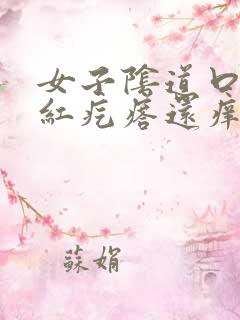 女子陰道口
紅疙瘩還痒
蘇娟